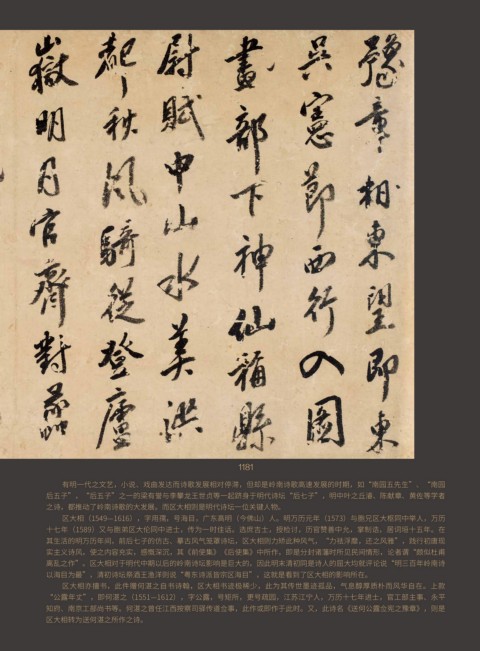 豫章相東望即東
吳憲節西行入圖
畫部下神仙稱縣
尉賦中山水美洪
都秋風騎從登廬
嶽明月官齋對
1181
有明一代之文艺，小说、戏曲发达而诗歌发展相对停滞，但却是岭南诗歌高速发展的时期，如“南园五先生”、“南园
后五子”，“后五子”之一的梁有誉与李攀龙王世贞等一起跻身于明代诗坛“后七子”，明中叶之丘濬、陈献章、黄佐等学者
之诗，都推动了岭南诗歌的大发展。而区大相则是明代诗坛一位关键人物。
区大相（1549—1616），字用孺，号海目，广东高明（今佛山）人。明万历元年（1573）与胞兄区大枢同中举人，万历
十七年（1589）又与胞弟区大伦同中进士，传为一时佳话。选庶吉士，授检讨，历官赞善中允，掌制诰，居词垣十五年。在
其生活的明万历年间，前后七子的仿古、摹古风气笼罩诗坛，区大相则力矫此种风气，“力祛浮靡，还之风雅”，践行初唐现
实主义诗风，使之内容充实，感慨深沉。其《前使集》《后使集》中所作，即是分封诸藩时所见民间情形，论者谓“群似杜甫
离乱之作”，区大相对于明代中期以后的岭南诗坛影响是巨大的。因此明末清初同是诗人的屈大均就评论说“明三百年岭南诗
以海目为最”，清初诗坛宗酒王渔洋则说“粤东诗派皆宗区海目”，这就是看到了区大相的影响所在。
区大相亦擅书，此件赠何湛之自书诗翰，区大相书迹极稀少，此为其传世墨迹孤品，气息醇厚质朴而风华自在。上款
“公露年丈”，即何湛之（1551—1612），字公露，号矩所，更号疏园，江苏江宁人，万历十七年进士，官工部主事、永平
知府、南京工部尚书等。何湛之曾任江西按察司驿传道佥事，此作或即作于此时。又，此诗名《送何公露佥宪之豫章》，则是
区大相转为送何湛之所作之诗。